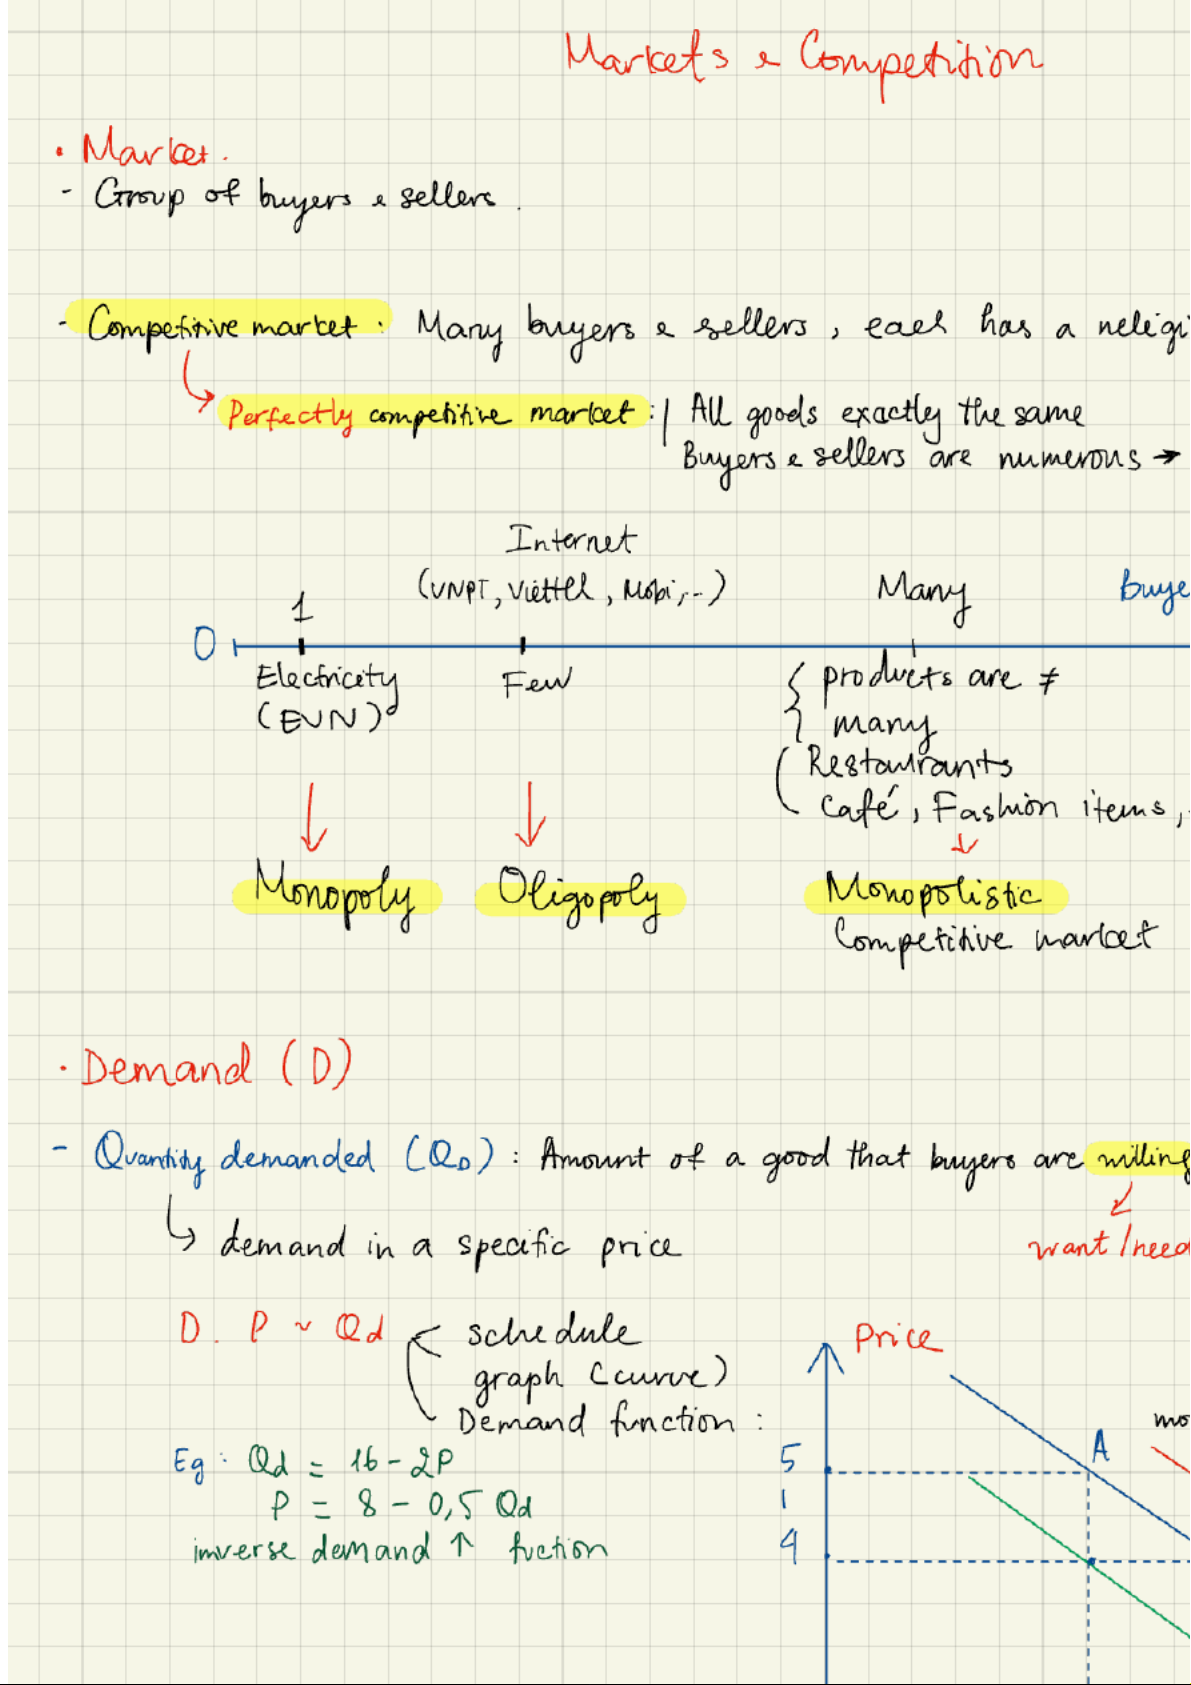 Markets & Competition
• Market.
- Group of buyers & sellers.
- Competitive market: Many buyers & sellers, each has a neligi
Perfectly competitive market: | All goods exactly the same
Buyers & sellers are numerous →
Internet
(VNPT, Viettel, Mobi,..)
1
Many
buye
0
Electricity
(EVN)
Few
products are ≠
many
(Restaurants
Café, Fashion items,
Monopoly
Oligopoly
Monopolistic
Competitive market
• Demand (D)
- Quantity demanded (QD): Amount of a good that buyers are willing
↳ demand in a specific price
want/need
D. P ~ Qd
schedule
graph (curve)
Demand function:
Eg: Qd = 16 - 2P
P = 8 - 0,5 Qd
imverse demand ↑ fuction
Price
mo
A
5
1
4